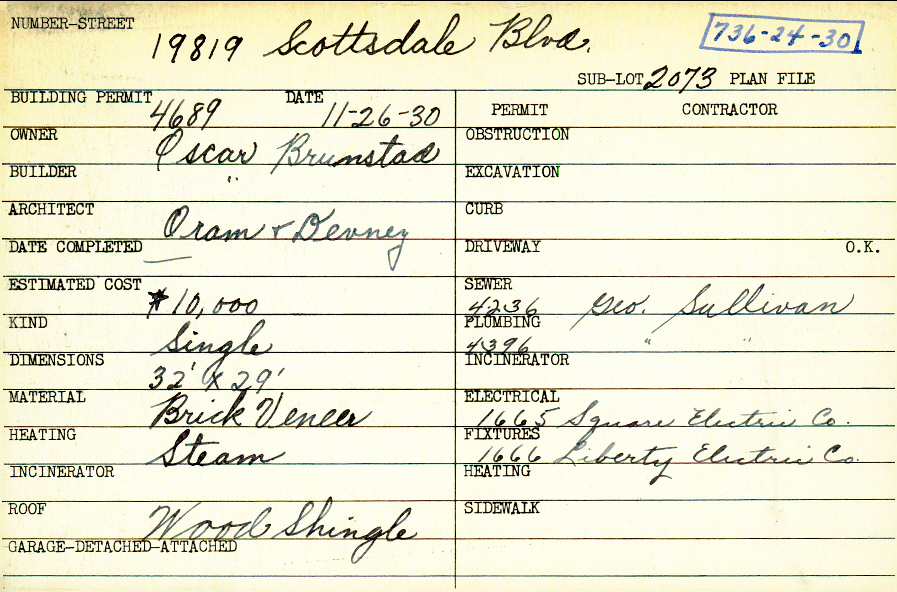 NUMBER-STREET 19819 Scottsdale Blvd. 736-24-30
SUB-LOT 2073 PLAN FILE
BUILDING PERMIT 4689 DATE 11-26-30
OWNER Oscar Brunstad
BUILDER "
ARCHITECT Oram & Devney
DATE COMPLETED —
ESTIMATED COST $10,000
KIND Single
DIMENSIONS 32' x 29'
MATERIAL Brick Veneer
HEATING Steam
INCINERATOR
ROOF Wood Shingle
GARAGE-DETACHED-ATTACHED
PERMIT CONTRACTOR
OBSTRUCTION
EXCAVATION
CURB
DRIVEWAY O.K.
SEWER 4236 Geo. Sullivan
PLUMBING 4396 " "
INCINERATOR
ELECTRICAL 1665 Square Electric Co.
FIXTURES 1666 Liberty Electric Co.
HEATING
SIDEWALK